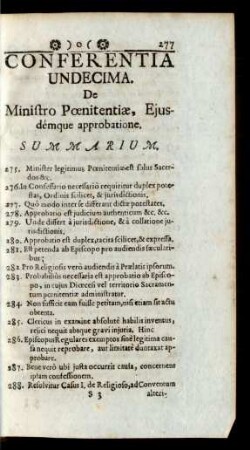 )o( 277
CONFERENTIA
UNDECIMA.
De
Ministro Pœnitentiæ, Ejus-
démque approbatione.
SUMMARIUM.
275. Minister legitimus Pœnitentiæ est solus Sacer-
dos &c.
276. In Confessario necessariò requiritur duplex pote-
stas, Ordinis scilicet, & jurisdictionis,
277. Quó modo inter se differant dictæ potestates,
278. Approbatio est judicium authenticum &c. &c.
279. Unde differt à jurisdictione, & à collatione ju-
risdictionis.
280. Approbatio est duplex, tacita scilicet, & expressa.
281. Est petenda ab Episcopo pro audiendis sæculari-
bus;
282 Pro Religiosis verò audiendis à Prælatis ipsorum.
283. Probabilius necessaria est approbatio ab Episco-
po, in cujus Diœcesi vel territorio Sacramen-
tum pœnitentiæ administratur.
284. Non sufficit eam fuisse petitam, nisi etiam sit actu
obtenta.
285. Clericus in examine absolutè habilis inventus,
reijci nequit absque gravi injuria. Hinc
286. Episcopus Regulares exemptos sinè legitima cau-
sa nequit reprobare, aut limitatè duntaxat ap-
probare.
287. Benè verò ubi justa occurrit causa, concernens
ipsam confessionem.
288. Resolvitur Casus I. de Religioso, ad Conventum
S 3 alteri-